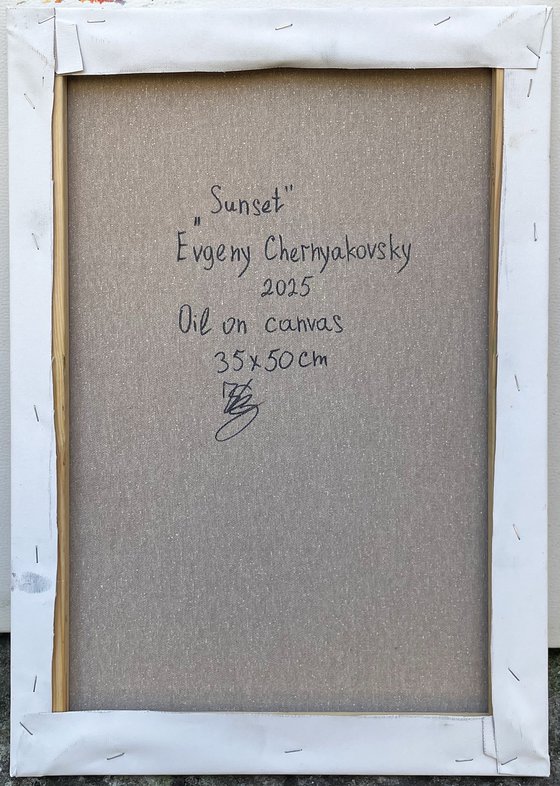 „Sunset"
Evgeny Chernyakovsky
2025
Oil on canvas
35x50cm